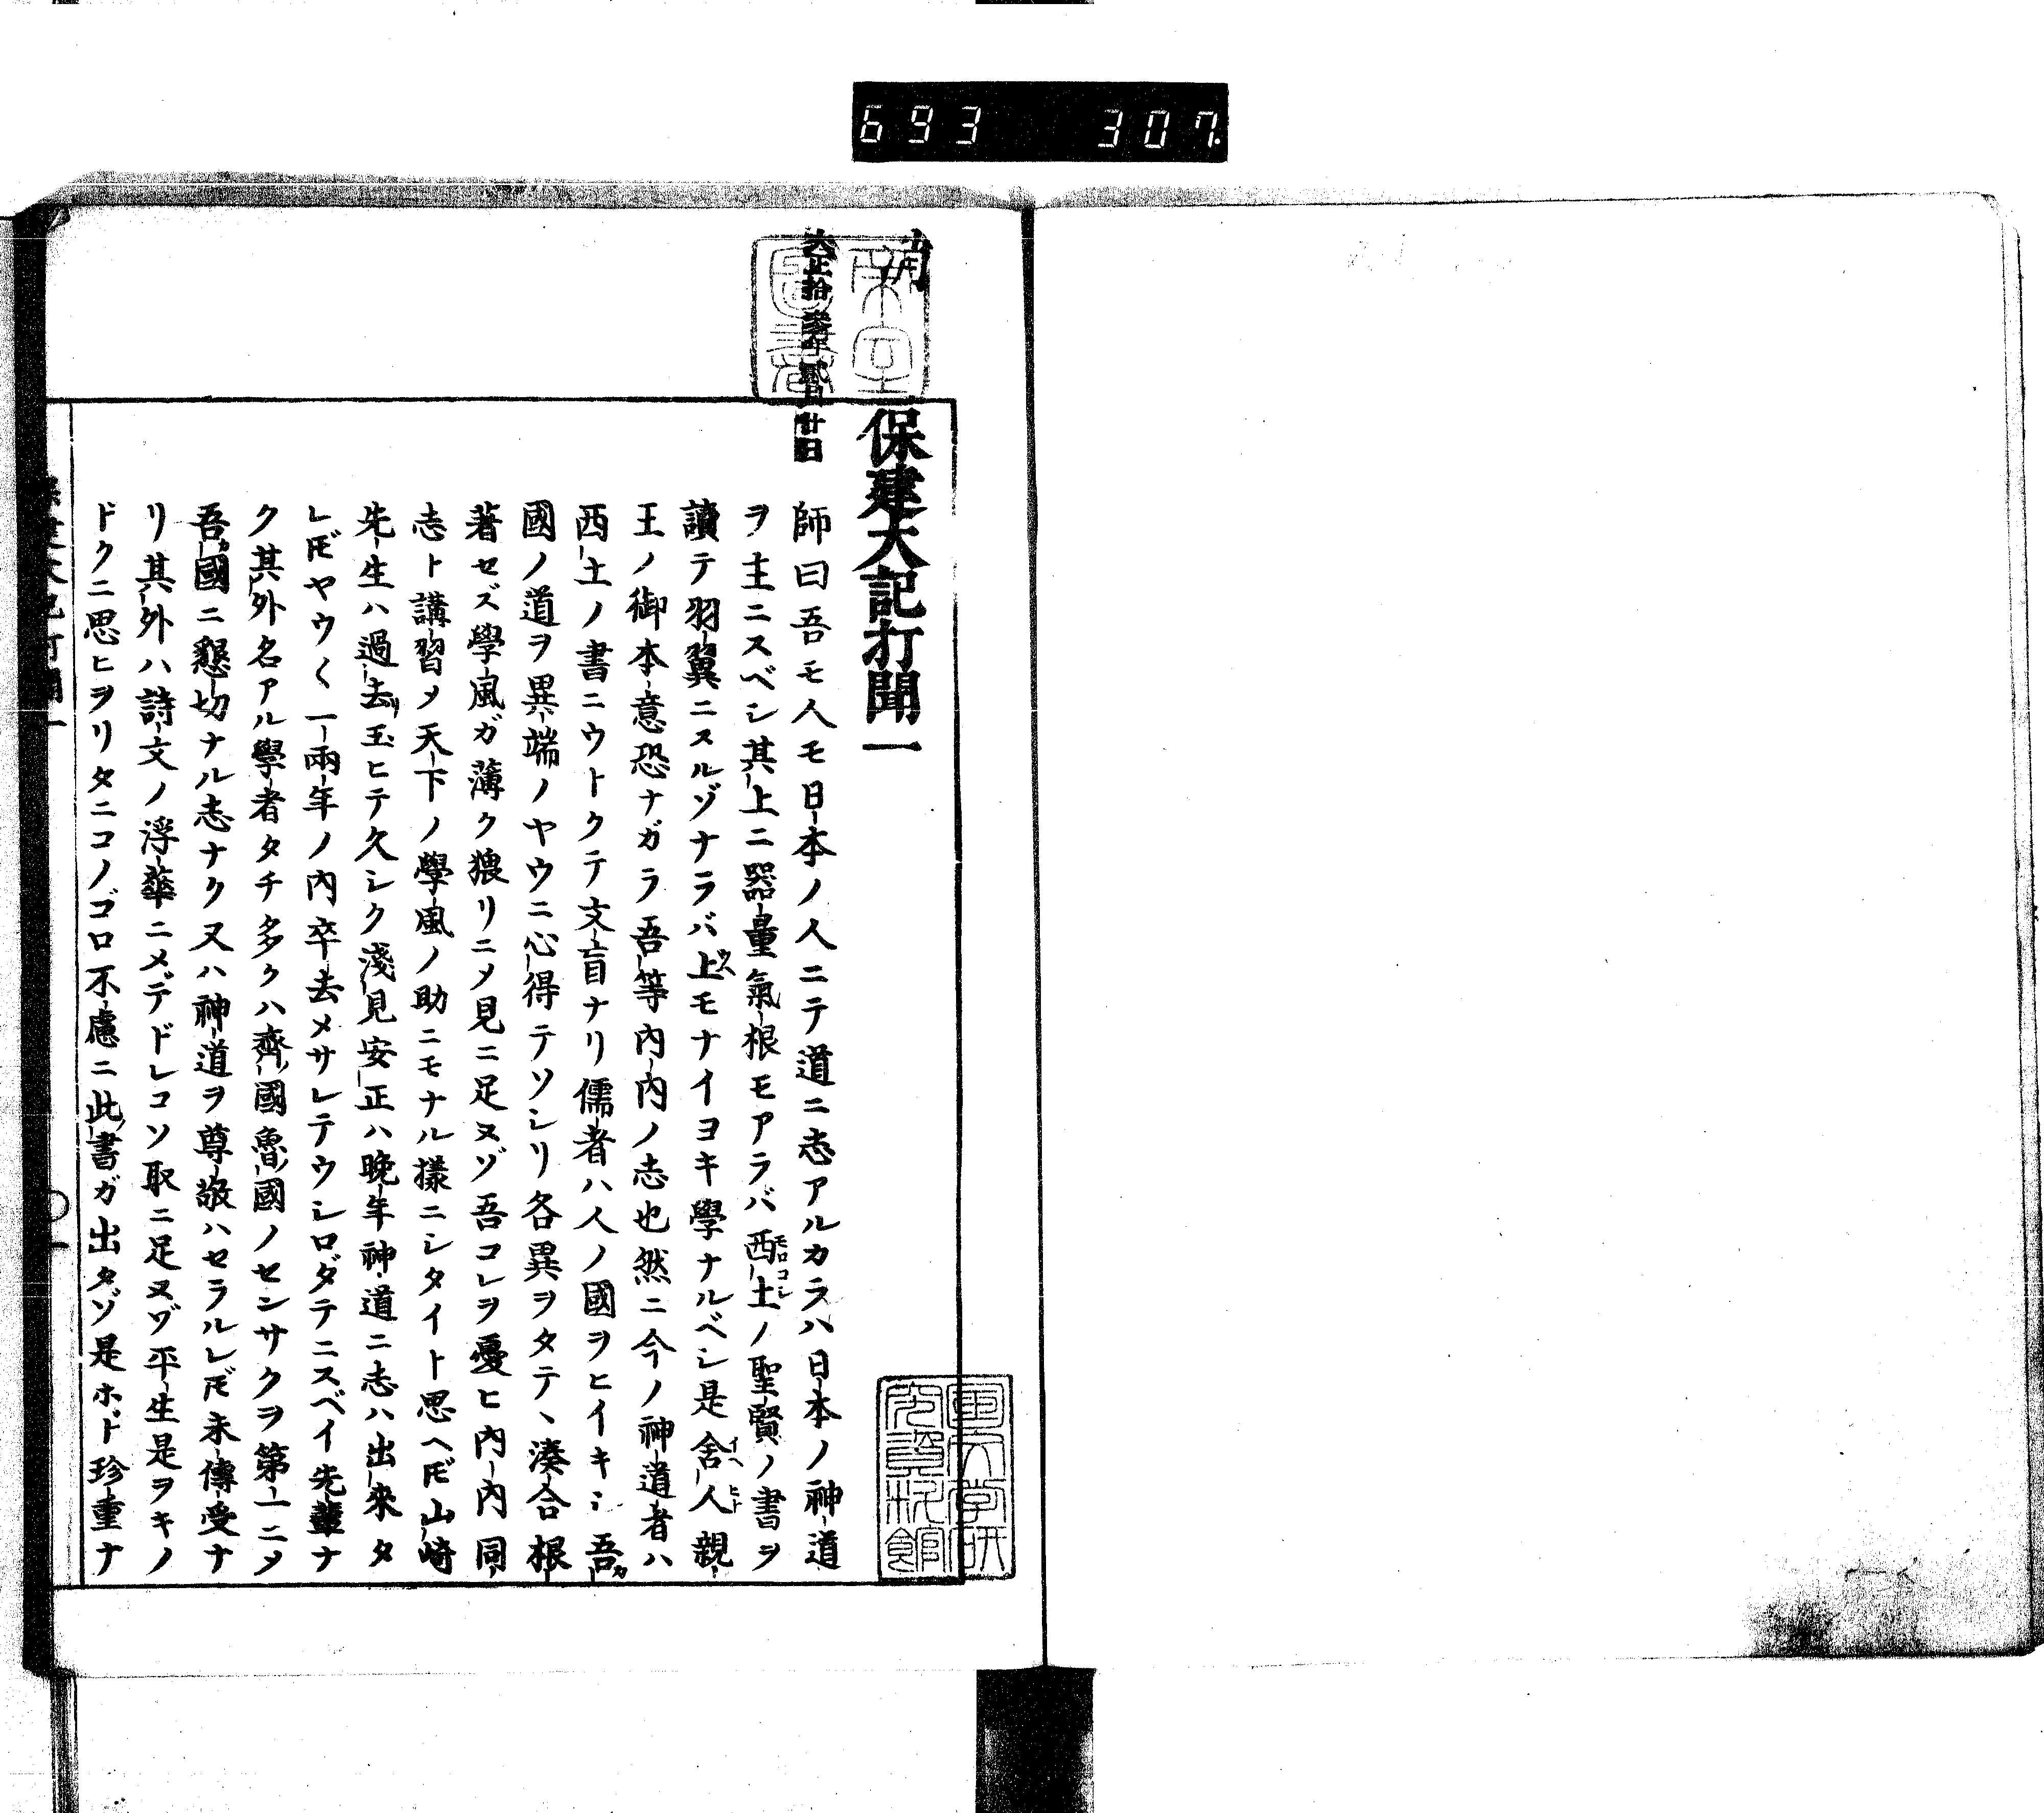 693 307
大正拾參年貳月廿日
保建大記打聞一
師曰吾モ人モ日本ノ人ニテ道ニ志アルカラハ日本ノ神道
ヲ主ニスベシ其上ニ器量氣根モアラバ西土ノ聖賢ノ書ヲ
讀テ羽翼ニスルゾナラバ上モナイヨキ學ナルベシ是舍人親
王ノ御本意恐ナガラ吾等内内ノ志也然ニ今ノ神道者ハ
西土ノ書ニウトクテ文盲ナリ儒者ハ人ノ國ヲヒイキシ吾
國ノ道ヲ異端ノヤウニ心得テソシリ各異ヲタテヽ湊合根
著セズ學風ガ薄ク猥リニメ見ニ足ヌゾ吾コレヲ憂ヒ内内同
志ト講習メ天下ノ學風ノ助ニモナル樣ニシタイト思ヘ𪜈山崎
先生ハ過去玉ヒテ久シク淺見安正ハ晩年神道ニ志ハ出來タ
レ𪜈ヤウ〱一兩年ノ内卒去メサレテウシロダテニスベイ先輩ナ
ク其外名アル學者タチ多クハ齊國魯國ノセンサクヲ第一ニメ
吾國ニ懇切ナル志ナク又ハ神道ヲ尊敬ハセラルレ𪜈未傳受ナ
リ其外ハ詩文ノ浮華ニメデドレコソ取ニ足ヌゾ平生是ヲキノ
ドクニ思ヒヲリタニコノゴロ不慮ニ此書ガ出タゾ是ホド珍重ナ